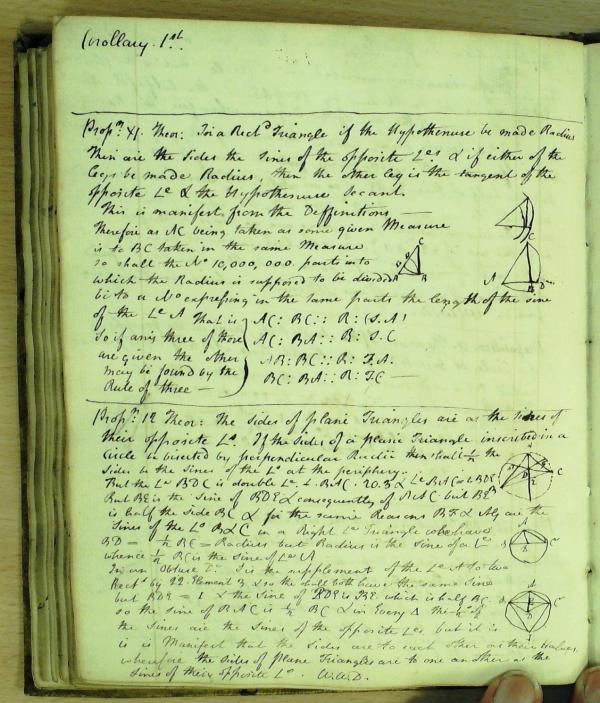 Corollary. 1st.
Propn. XI. Theor: In a Rectd Triangle if the Hypothenuse be made Radius
Then are the Sides the Sines of the opposite Les. & if either of the
Legs be made Radius, then the other Leg is the tangent of the
opposite Le & the Hypothenuse Secant.
This is manifest from the Deffinitions —
Therefore as AC being taken as some given Measure
is to BC taken in the same Measure
so shall the No 10,000,000 parts into
which the Radius is supposed to be divided
be to a No expressing in the same parts the length of the sine
of the Le A That is AC : BC :: R : S.A
so if any three of those AC : BA :: R : S.C
are given the other AB : BC :: R : T.A.
may be found by the BC : BA :: R : T.C —
Rule of three —
Propn. 12 Theor: The Sides of plane Triangles are as the Sines of
their opposite Les. If the Sides of a plane Triangle inscribed in a
Circle be bisected by perpendicular Radii then shall ½ the
Sides be the Sines of the Les at the periphery.
But the Le BDC is double Le BAC. 20.3 & Le BAC = L BDE
But BE is the Sine of BDE & consequently of BAC but BE
is half the Side BC & for the same Reasons are the
Sines of the Les B & C in a Right Le Triangle
BD = ½ BC = Radius but Radius is the Sine of a Le
whence ½ BC is the Sine of Le A
In an Obtuse is the supplement of the Le A to two
Rects by 22 Element 3 & so they both have the same Sine
but BDE = & the Sine of BDE is BE which is half BC
so the Sine of BAC is ½ BC & in Every Δ the ½s of
the Sines are the Sines of the opposite Les but it is
is Manifest that the Sides are to each other as their Halves
wherefore the Sides of plane Triangles are to one another as the
Sines of their opposite Les. W.W.D.